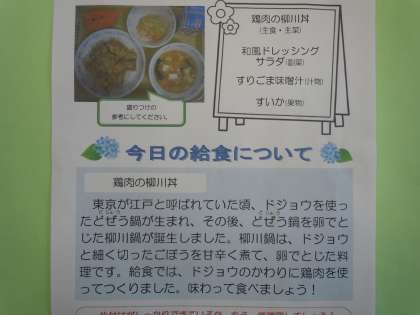 鶏肉の柳川丼
(主食・主菜)
和風ドレッシング
サラダ(副菜)
すりごま味噌汁(汁物)
すいか(果物)
盛りつけの
参考にしてください。
今日の給食について
鶏肉の柳川丼
東京が江戸と呼ばれていた頃、ドジョウを使っ
たどぜう鍋が生まれ、その後、どぜう鍋を卵でと
じた柳川鍋が誕生しました。柳川鍋は、ドジョウ
と細く切ったごぼうを甘辛く煮て、卵でとじた料
理です。給食では、ドジョウのかわりに鶏肉を使
ってつくりました。味わって食べましょう！